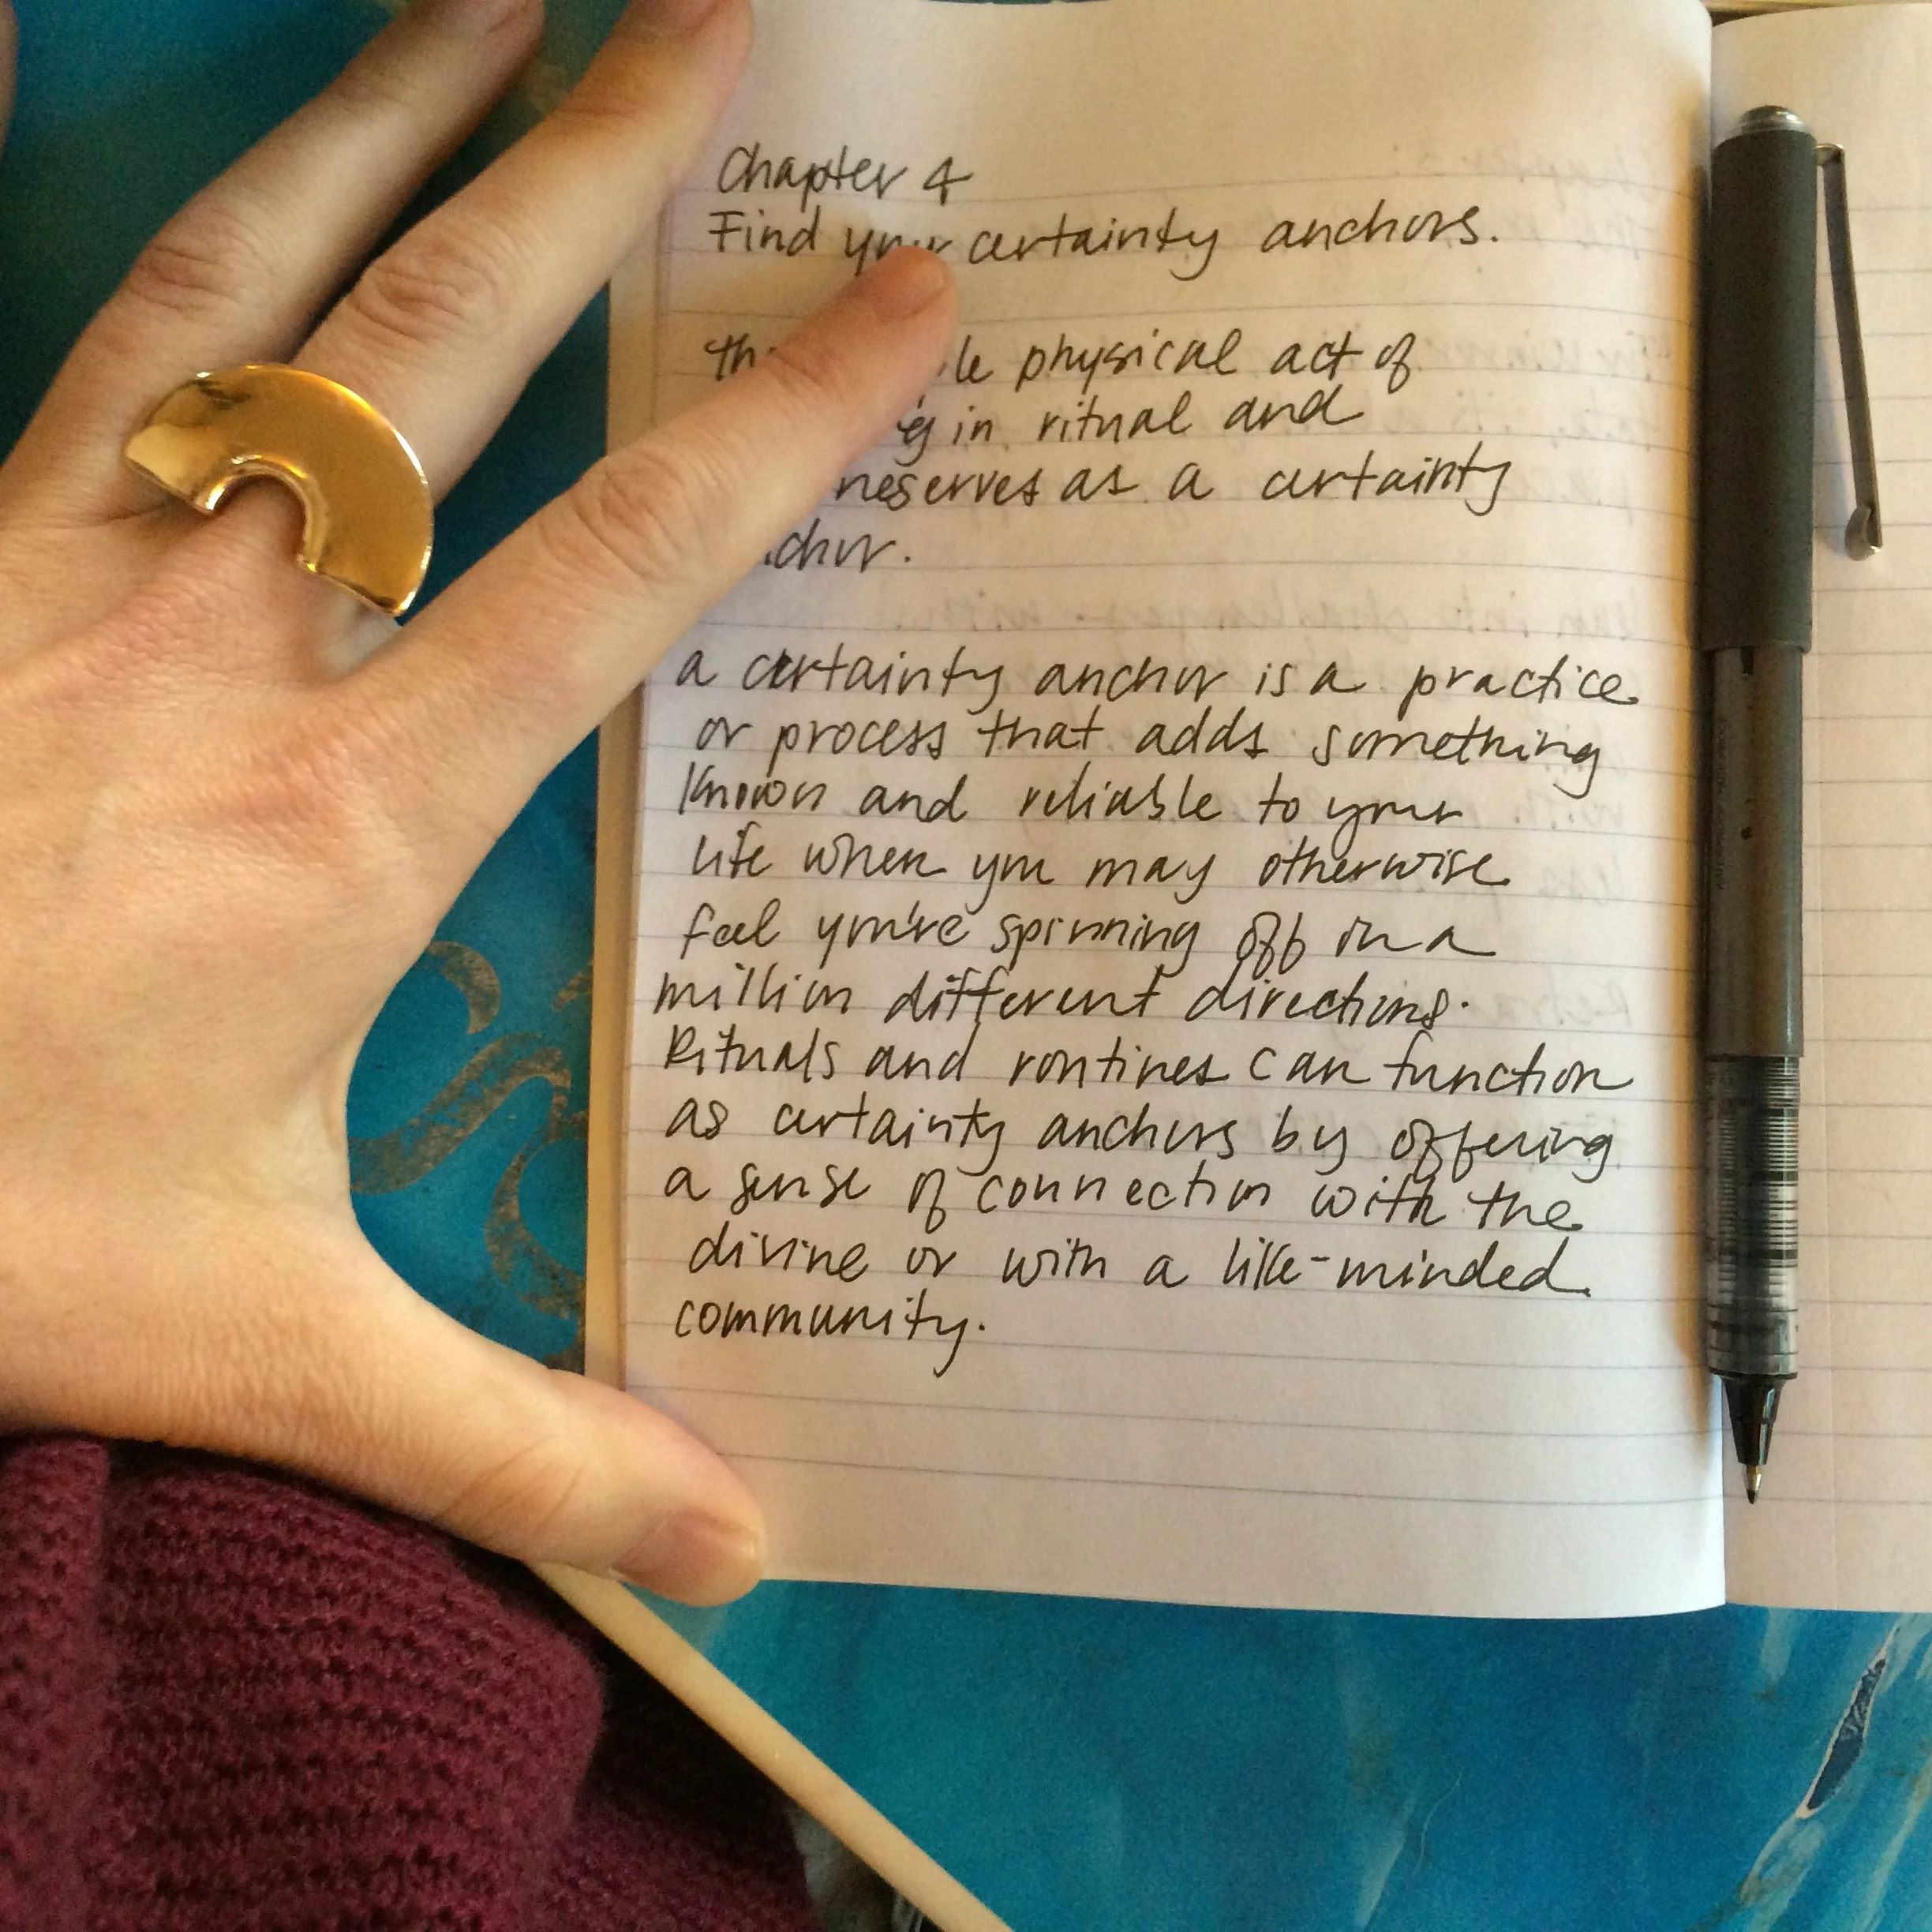 Chapter 4
Find your certainty anchors.
physical act of
in ritual and
as a certainty
a certainty anchor is a practice
or process that adds something
known and reliable to your
life when you may otherwise
feel you're spinning off in a
million different directions.
Rituals and routines can function
as certainty anchors by offering
a sense of connection with the
divine or with a like-minded
community.